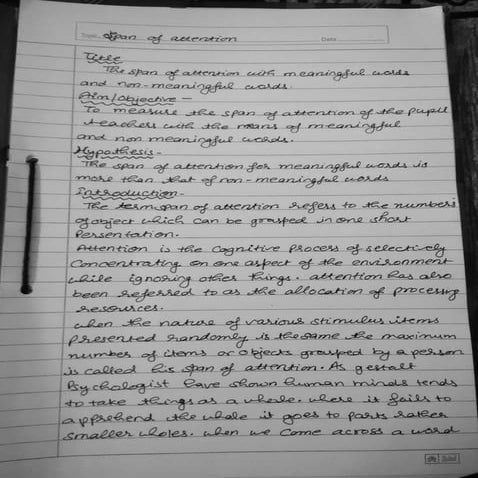 Topic Span of attention Date
Title
The span of attention with meaningful words
and non-meaningful words.
Aim/Objective -
To measure the span of attention of the pupil
teachers with the means of meaningful
and non meaningful words.
Hypothesis -
The span of attention for meaningful words is
more than that of non-meaningful words
Introduction -
The term span of attention refers to the numbers
of object which can be grasped in one short
Persentation.
Attention is the Cognitive Process of selectively
Concentrating on one aspect of the environment
while ignoring other things. attention has also
been referred to as the allocation of processing
resources.
when the nature of various stimulus items
Presented randomly is the same the maximum
number of items or objects grasped by a person
is called his span of attention. As gestalt
Psychologist have shown human minds tends
to take things as a whole. where it fails to
apprehend the whole it goes to parts rather
smaller wholes. when we come across a word